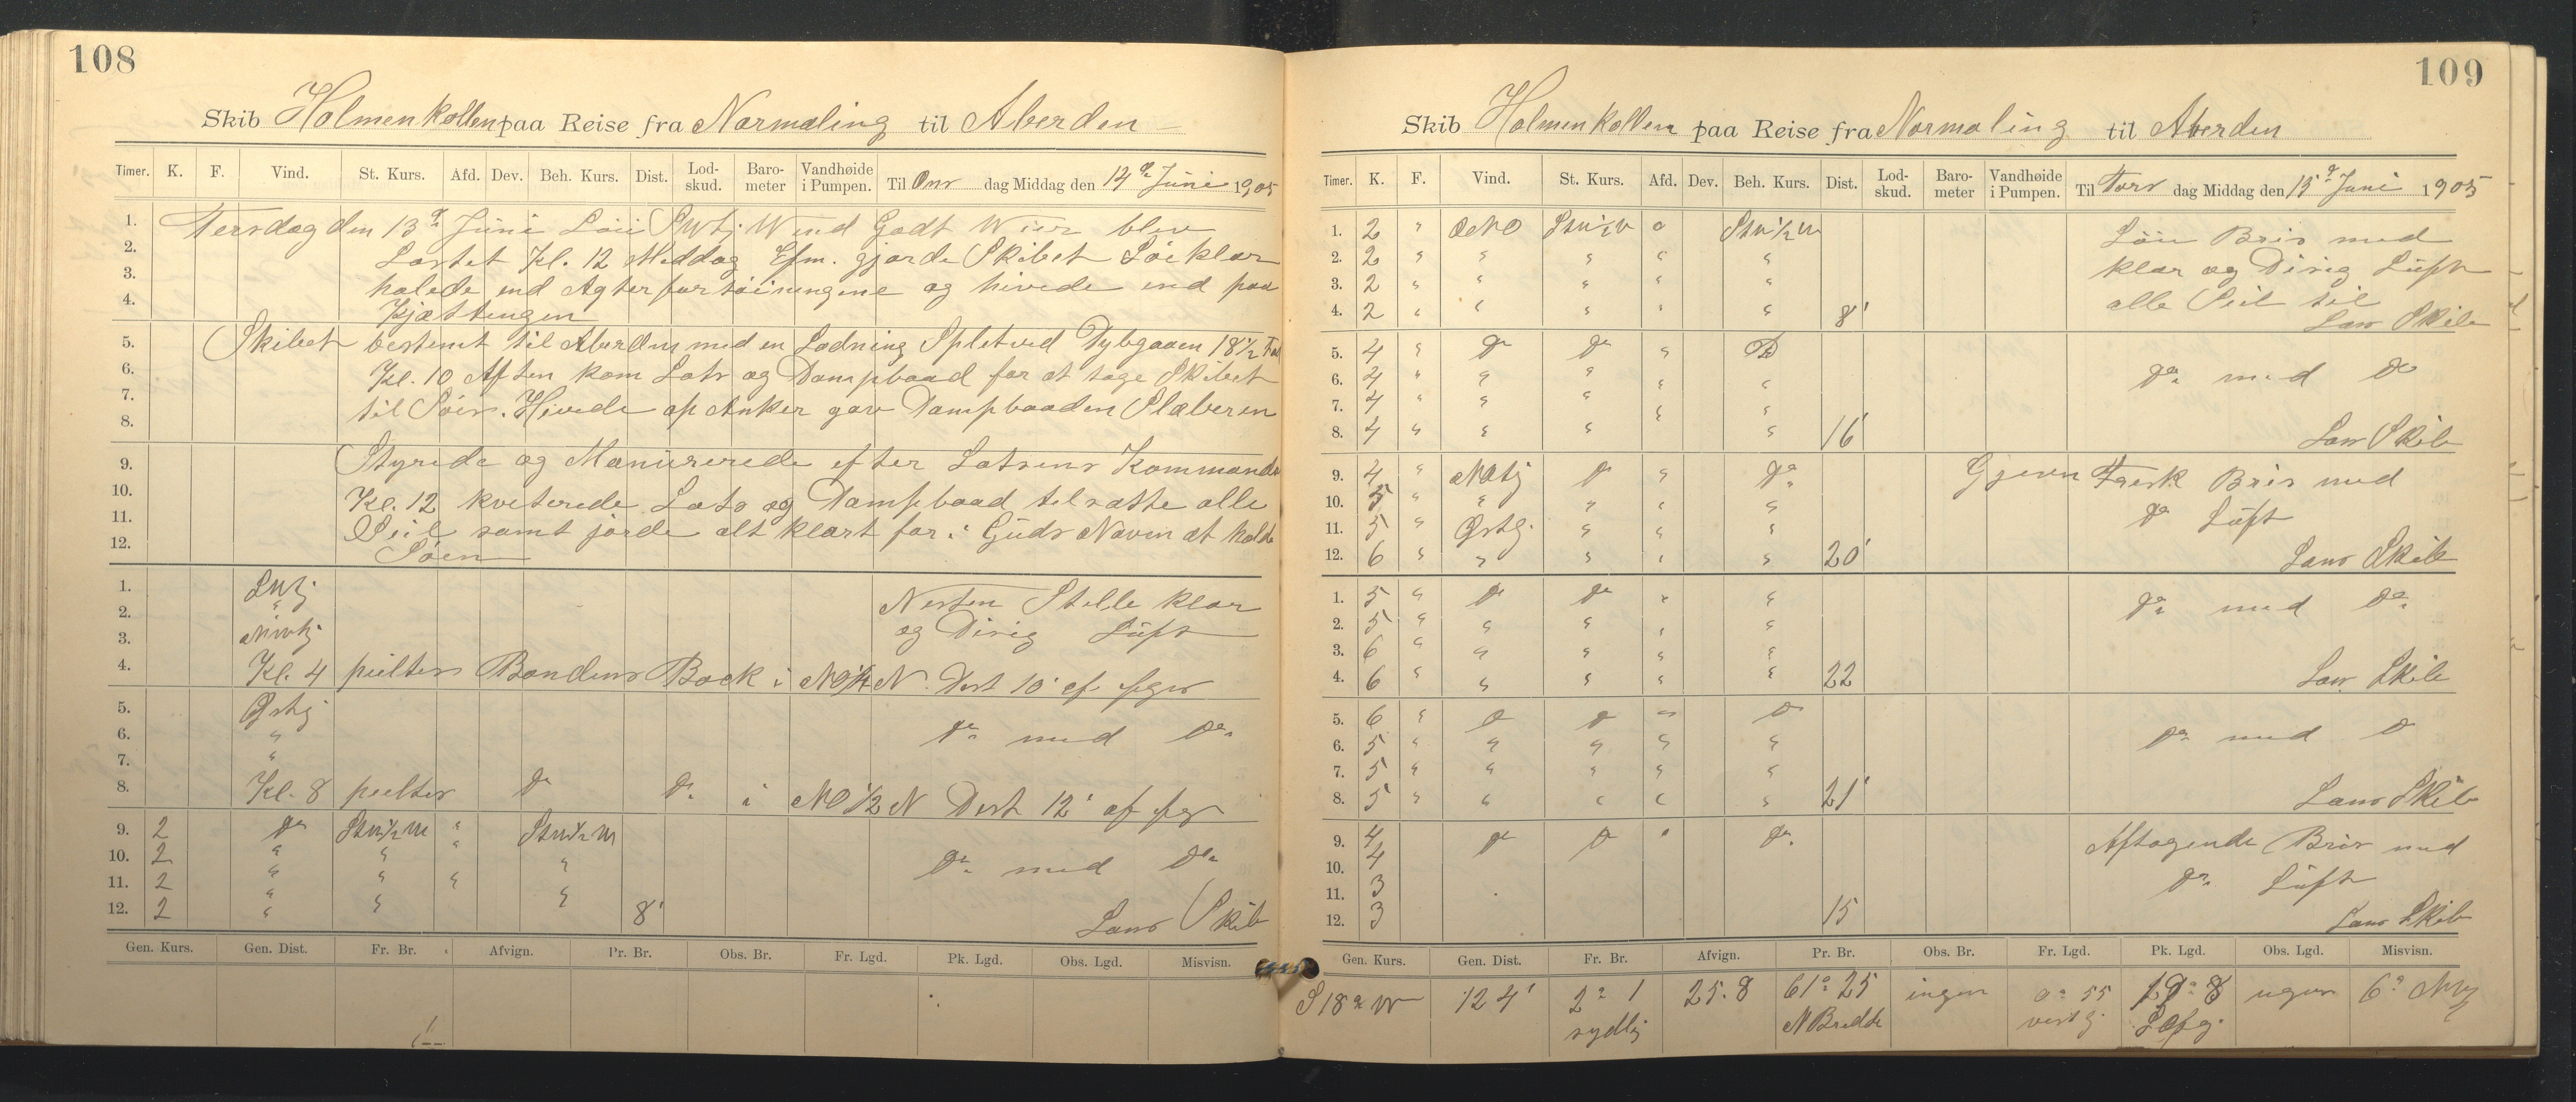 108
Skib Holmenkollen paa Reise fra Normaling til Aberden
Timer. K. F. Vind. St. Kurs. Afd. Dev. Beh. Kurs. Dist. Lod-skud. Baro-meter Vandhøide i Pumpen. Til Ons dag Middag den 14 de Juni 1905
1. Tersdag den 13 de Juni Løi Svtj. Wind Godt Wier blev
2. Lastet Kl. 12 Middag Efm. gjorde Skibet Søi klar
3. halede end Agterfortøiningene og hivede end paa
4. Kjættingen
5. Skibet bestemt til Aberden med en Ladning Spletved Dybgaaen 18 1/2 Fod
6. Kl. 10 Aften kom Lots og Dampbaad for at tage Skibet
7. til Søis. Hivede op Anker gav Dampbaaden Slæberen
8.
9. Styrede og Manurerede efter Lotsens Kommando
10. Kl. 12 kviterede Lots og Dampbaad tilsatte alle
11. Seil samt jorde alt klart for i Guds Naven at holde
12. Søen
1. Svtj Nesten Stelle klar
2. " og Disig Lüft
3. NWtj
4. Kl. 4 peiltes Bondens Back i NO 1/4 N Dist 10' af feges
5. Østj
6. " do med do
7. "
8. Kl. 8 peiltes do do i NO 1/2 N Dist 12' af feg
9. 2 do StW 1/2 W " StW 1/2 W
10. 2 " " " " do med do
11. 2 " " " "
12. 2 " " " 8' Lans Skib
Gen. Kurs. Gen. Dist. Fr. Br. Afvign. Pr. Br. Obs. Br. Fr. Lgd. Pk. Lgd. Obs. Lgd. Misvisn.
109
Skib Holmenkollen paa Reise fra Normaling til Aberden
Timer. K. F. Vind. St. Kurs. Afd. Dev. Beh. Kurs. Dist. Lod-skud. Baro-meter Vandhøide i Pumpen. Til Tors dag Middag den 15 de Juni 1905
1. 2 " ONO StW 1/2 W o StW 1/2 W Løi Bris med
2. 2 " " " " " klar og Disig Lüft
3. 2 " " " " " alle Seil til
4. 2 " " " " " 8' Lans Skib
5. 4 " do do " Do
6. 4 " " " " " do med do
7. 4 " " " " "
8. 4 " " " " 16' Lans Skib
9. 4 " NOtj do " do Gjevn Fresk Bris med
10. 5 " " " " " do Lüft
11. 5 " Østj. " " "
12. 6 " " " " " 20' Lans Skib
1. 5 " do do " " do med do
2. 5 " " " " "
3. 6 " " " " "
4. 6 " " " " " 22 Lans Skib
5. 6 " do do " do
6. 5 " " " " " do med do
7. 5 " " " " "
8. 5 " " " " " 21' Lans Skib
9. 4 do do " do Aftagende Bris med
10. 4 do Lüft
11. 3
12. 3 15 Lans Skib
Gen. Kurs. Gen. Dist. Fr. Br. Afvign. Pr. Br. Obs. Br. Fr. Lgd. Pk. Lgd. Obs. Lgd. Misvisn.
S 18° W 124' 2° 1 25.8 61° 25 ingen 0° 55 19° 8 ingen 6°
sydlig N Bredde vestlg.